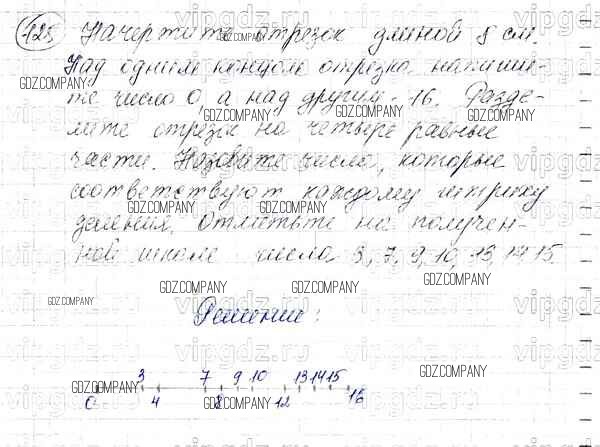 125. Начертите отрезок длиной 8 см.
Над одним концом отрезка напиши-
те число 0, а над другим - 16. Разде-
лите отрезок на четыре равные
части. Назовите числа, которые
соответствуют каждому штриху
деления. Отметьте на получен-
ной шкале числа 3, 7, 9, 10, 13, 14, 15.
Решение:
3 7 9 10 13 14 15
0 4 8 12 16
GDZ.COMPANY
vipgdz.ru